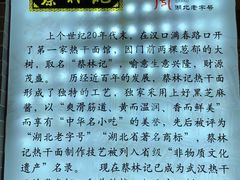 蔡林记
湖北老字号
上个世纪20年代末，在汉口满春路口开
了第一家热干面馆，因门前两棵葱郁的大
树，取名“蔡林记”，喻意生意兴隆，财源
茂盛。 历经近百年的发展，蔡林记热干面
形成了独特的工艺，独家采用上好黑芝麻
酱，以“爽滑筋道、黄而温润、香而鲜美”
而享有“中华名小吃”的美誉，先后被评为
“湖北老字号”“湖北省著名商标”，蔡林
记热干面制作技艺被列入省级“非物质文化
遗产”名录。 现在蔡林记已成为武汉热干